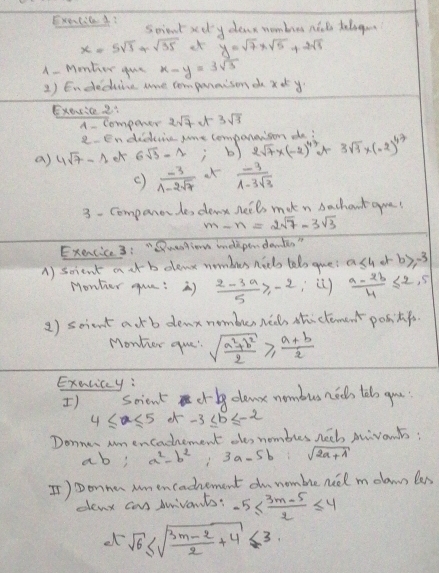 Exercice 1:
Soient x et y deux nombres réels tels que
x = 5√3 + √35 et y = √7 × √5 + 2√3
1 - Montrer que x - y = 3√3
2) En déduire une comparaison de x et y.
Exercice 2:
1 - Comparer 2√7 et 3√3
2 - En déduire une comparaison de :
a) 4√7 - 1 et 6√3 - 1 ; b) 2√7 × (-2)^47 et 3√3 × (-2)^47
c) -3/(1-2√7) et -3/(1-3√3)
3 - Comparer les deux réels m et n sachant que :
m - n = 2√7 - 3√3
Exercice 3: "Questions indépendantes"
1) Soient a et b deux nombres réels tels que: a ≤ 4 et b ≥ -3
Montrer que : i) (2-3a)/5 ≥ -2 ; ii) (a-2b)/4 ≤ 2,5
2) Soient a et b deux nombres réels strictement positifs.
Montrer que: √((a²+b²)/2) ≥ (a+b)/2
Exercice 4:
I) Soient a et b deux nombres réels tels que:
4 ≤ a ≤ 5 et -3 ≤ b ≤ -2
Donner un encadrement des nombres réels suivants :
ab ; a² - b² ; 3a - 5b ; √(2a+1)
II) Donner un encadrement du nombre réel m dans les
deux cas suivants: -5 ≤ (3m-5)/2 ≤ 4
et √6 ≤ √((3m-2)/2 + 4) ≤ 3.